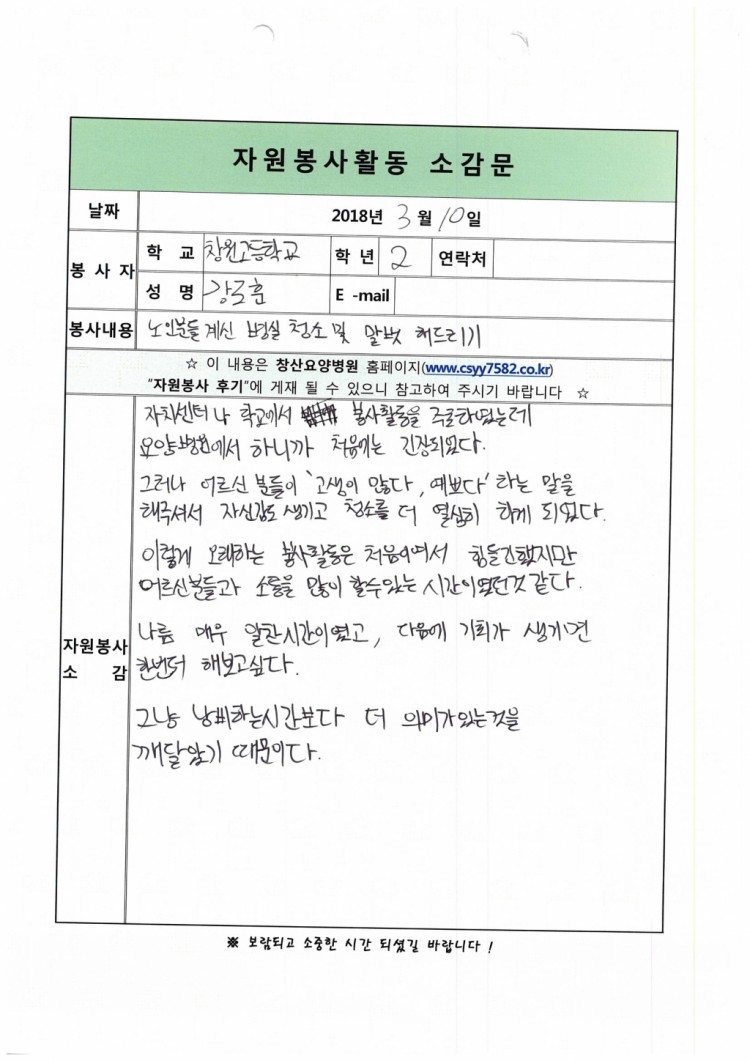 자원봉사활동 소감문
날짜 2018년 3월 10일
봉사자 학 교 창원고등학교 학 년 2 연락처
성 명 E -mail
봉사내용 노인분들 계신 병실 청소 및 말벗 해드리기
☆ 이 내용은 창산요양병원 홈페이지(www.csyy7582.co.kr)
"자원봉사 후기"에 게재 될 수 있으니 참고하여 주시기 바랍니다 ☆
자원봉사
소 감
자치센터나 학교에서 봉사활동을 주로하였는데
요양병원에서 하니까 처음에는 긴장되었다.
그러나 어르신 분들이 '고생이 많다, 예쁘다' 라는 말을
해주셔서 자신감도 생기고 청소를 더 열심히 하게 되었다.
이렇게 오래하는 봉사활동은 처음이여서 힘들긴했지만
어르신분들과 소통을 많이 할수있는 시간이였던것 같다.
나름 매우 알찬시간이였고, 다음에 기회가 생기면
한번더 해보고싶다.
그냥 낭비하는시간보다 더 의미가있는것을
깨달았기 때문이다.
※ 보람되고 소중한 시간 되셨길 바랍니다 !